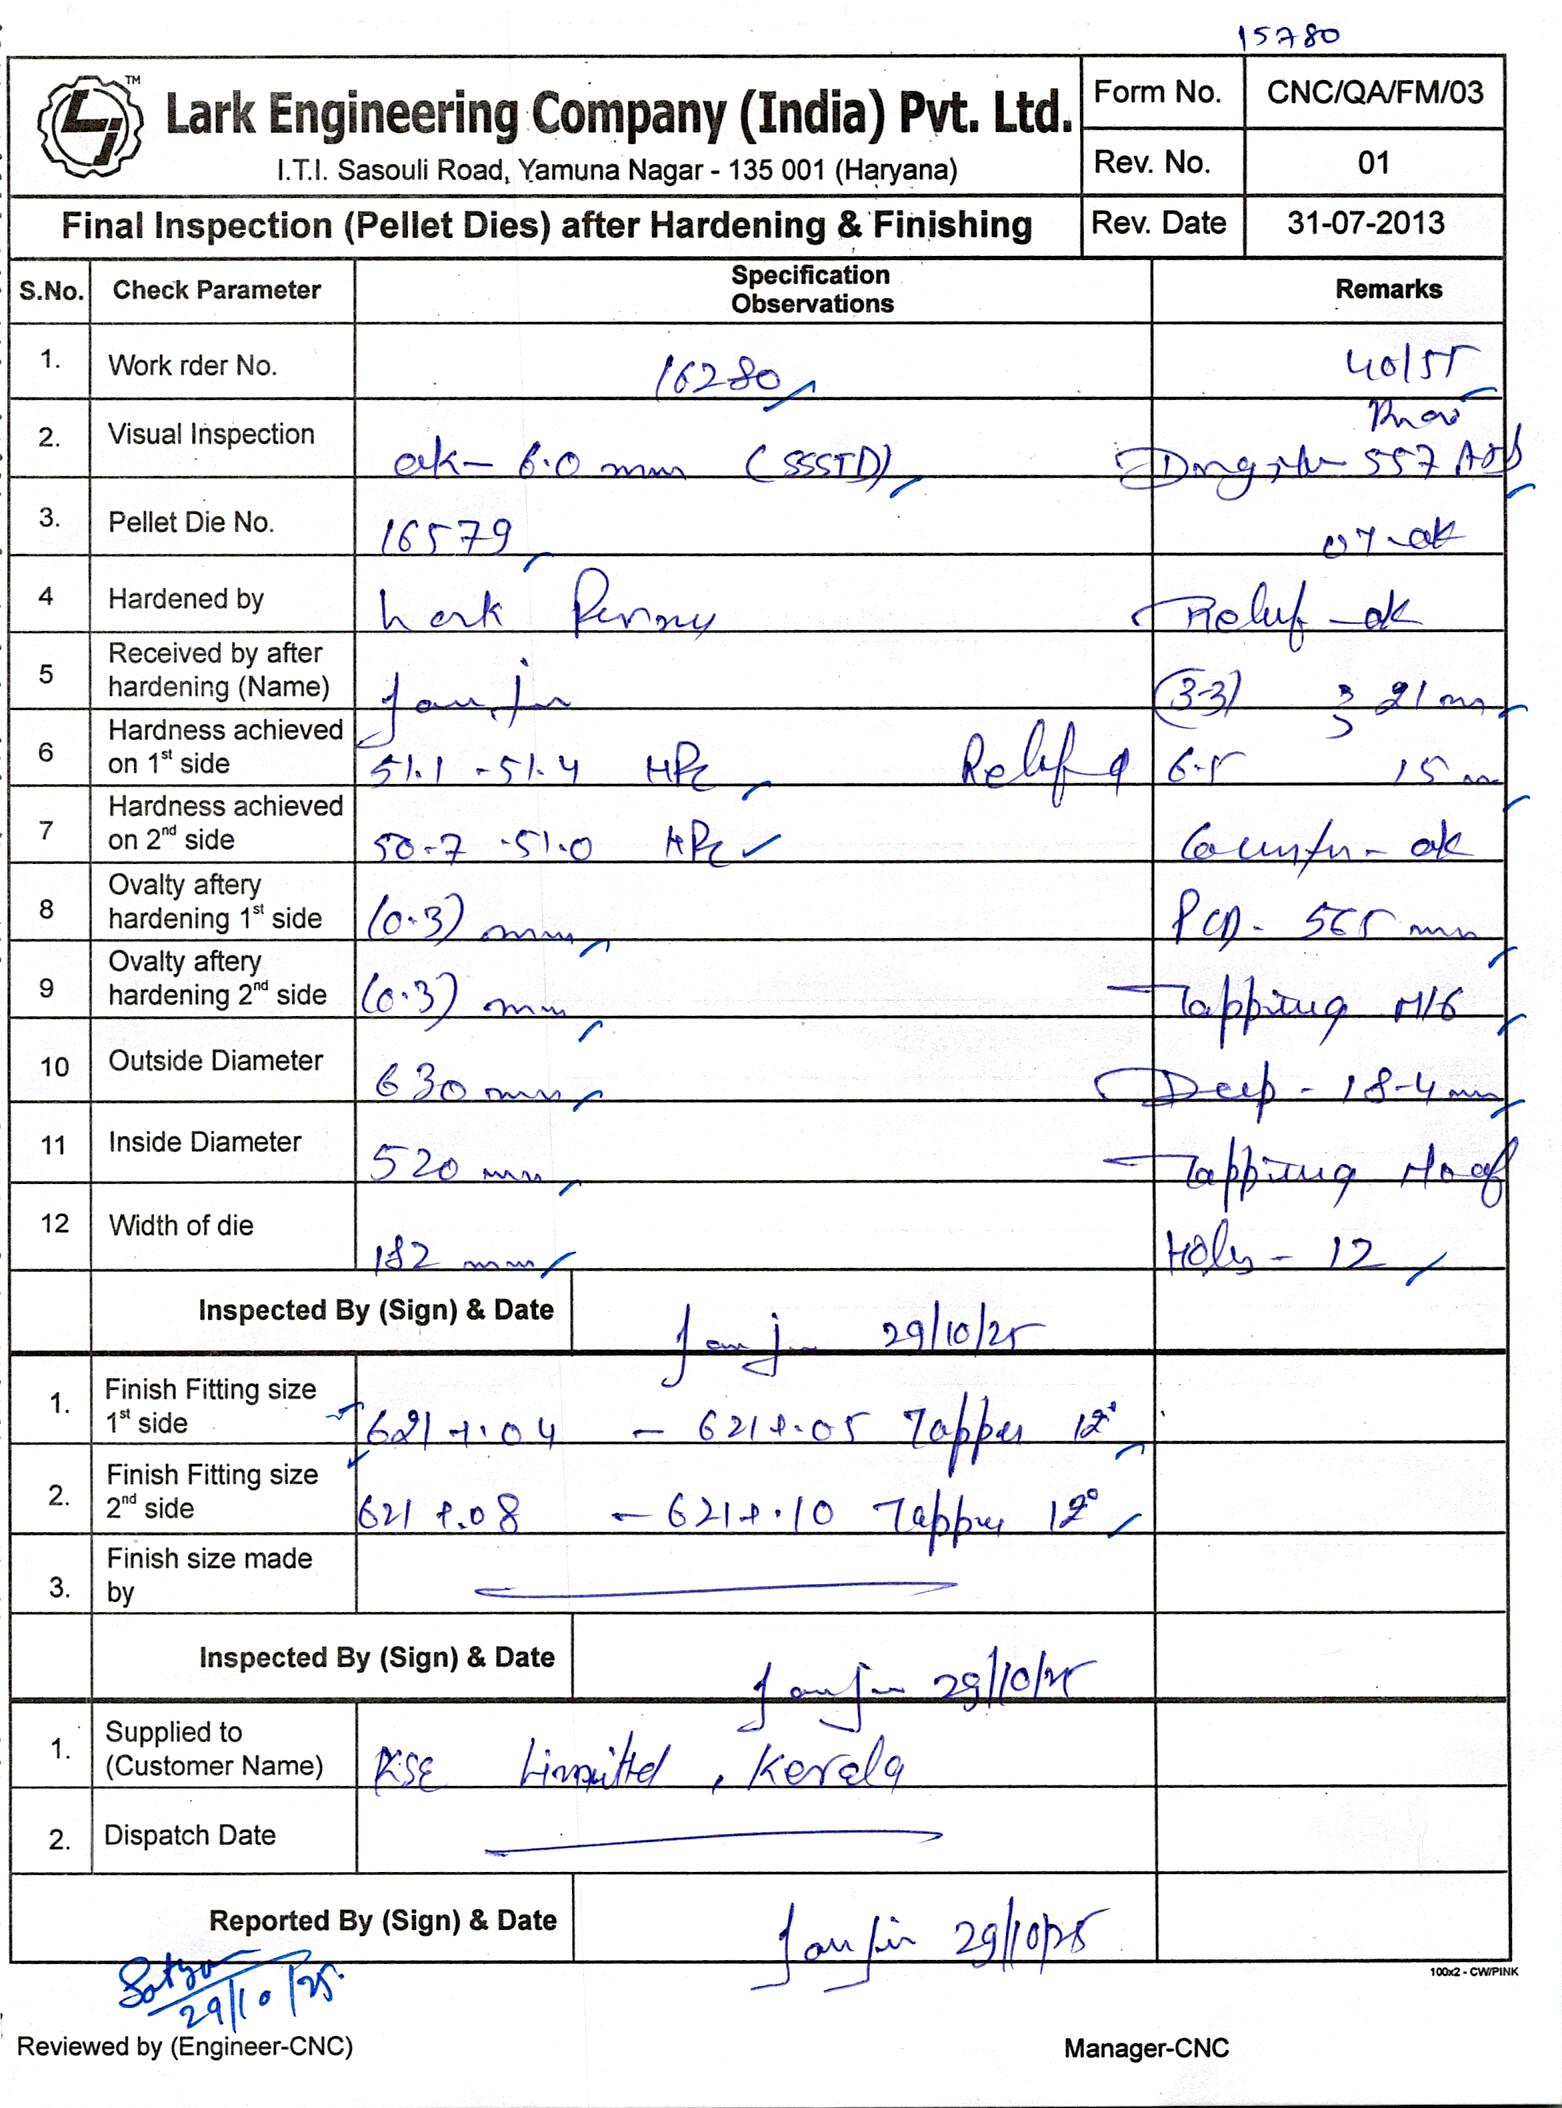 15780
TM
Lark Engineering Company (India) Pvt. Ltd.
I.T.I. Sasouli Road, Yamuna Nagar - 135 001 (Haryana)
Form No. CNC/QA/FM/03
Rev. No. 01
Final Inspection (Pellet Dies) after Hardening & Finishing
Rev. Date 31-07-2013
S.No. Check Parameter Specification Observations Remarks
1. Work rder No. 16280 40/55
2. Visual Inspection ok- 6.0 mm (SSSTD) 557
3. Pellet Die No. 16579 07-ok
4 Hardened by Lark Relief -ok
5 Received by after hardening (Name) (3-3) 21 mm
6 Hardness achieved on 1st side 51.1 -51.4 HRC Relief 6.5 15 mm
7 Hardness achieved on 2nd side 50.7 -51.0 HRC Counter - ok
8 Ovalty aftery hardening 1st side (0.3) mm PCD- 565 mm
9 Ovalty aftery hardening 2nd side (0.3) mm Tapping M16
10 Outside Diameter 630 mm Deep - 18-4 mm
11 Inside Diameter 520 mm Tapping No of
12 Width of die 182 mm Holes - 12
Inspected By (Sign) & Date 29/10/25
1. Finish Fitting size 1st side 621 +.04 - 621+.05 Tapper 12°
2. Finish Fitting size 2nd side 621 +.08 - 621+.10 Tapper 12°
3. Finish size made by
Inspected By (Sign) & Date 29/10/25
1. Supplied to (Customer Name) KSE Limitted, Kerala
2. Dispatch Date
Reported By (Sign) & Date 29/10/25
100x2 - CW/PINK
Satya
29/10/25.
Reviewed by (Engineer-CNC) Manager-CNC